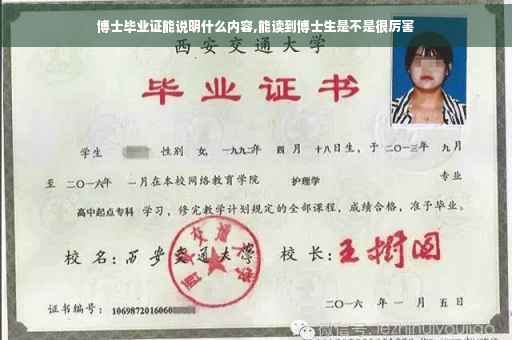 博士毕业证能说明什么内容,能读到博士生是不是很厉害
西安交通大学
毕业证书
学生 性别 女, 一九九二年 四月 十八日生, 于 二〇一三年 九月
至 二〇一六年 一月在本校网络教育学院 护理学 专业
高中起点专科 学习, 修完教学计划规定的全部课程, 成绩合格, 准予毕业。
校名: 西安交通大学 校长: 王树国
西安交通大学
证书编号: 1069872016060
二〇一六 年 一 月 五 日
微信号: jezhihuiyoujiao